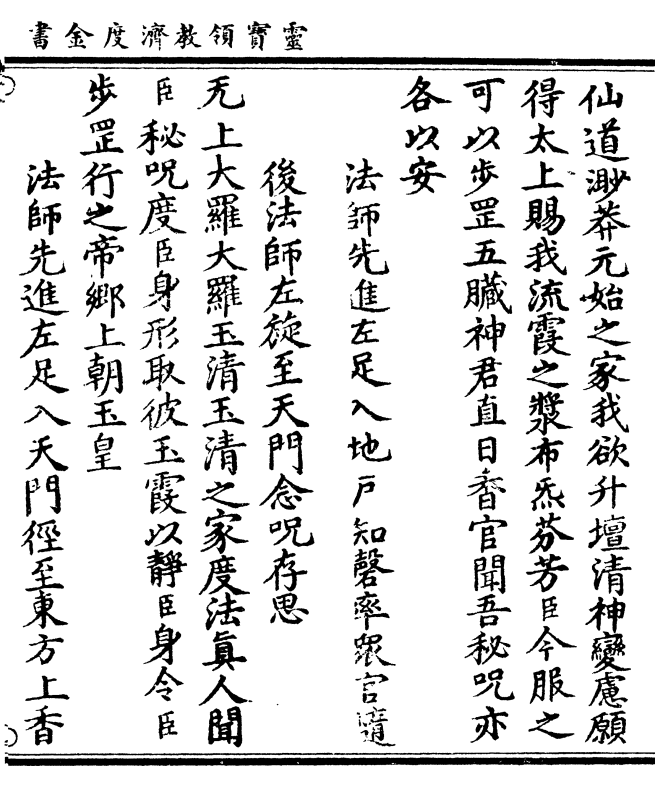 靈寶領教濟度金書
仙道渺莽元始之家我欲升壇清神變慮願
得太上賜我流霞之漿布炁芬芳臣今服之
可以步罡五臟神君直日香官聞吾秘呪亦
各以安
法師先進左足入地戶知磬率衆官隨
後法師左旋至天門念呪存思
无上大羅大羅玉清玉清之家度法眞人聞
臣秘呪度臣身形取彼玉霞以靜臣身令臣
步罡行之帝鄉上朝玉皇
法師先進左足入天門徑至東方上香